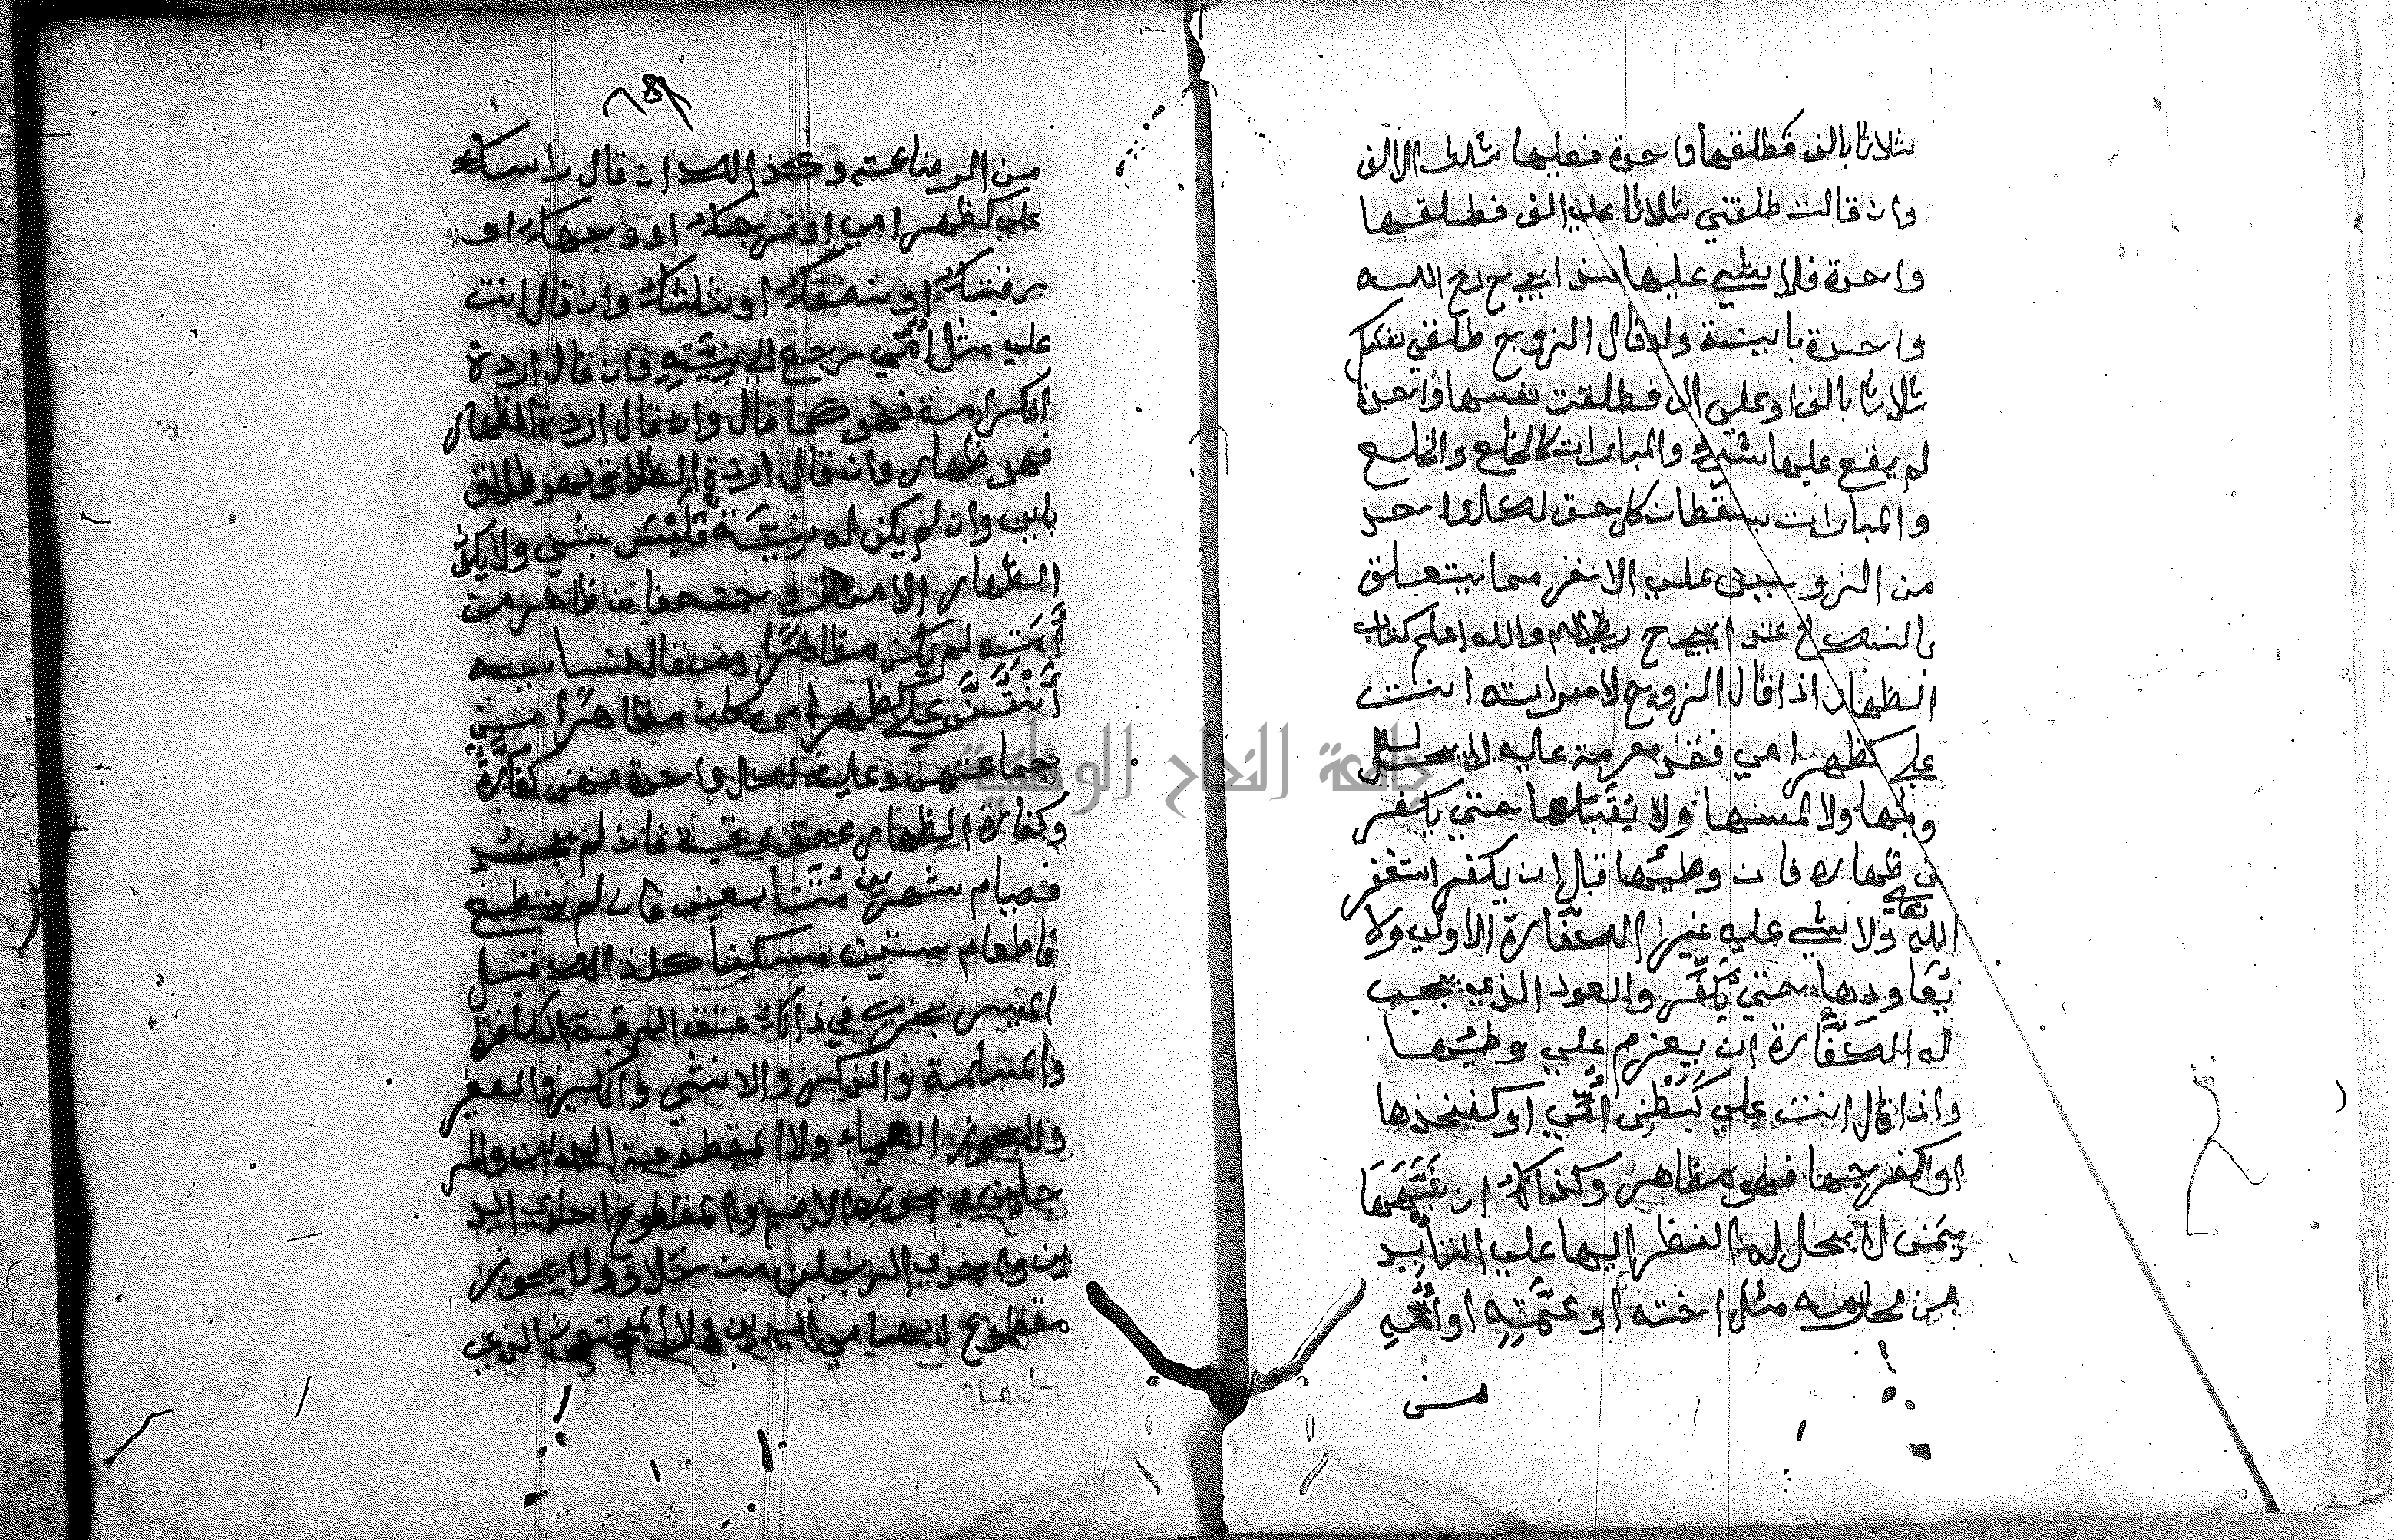 ثلاثا بالف فطلقها واحدة فعليها ثلث الالف
وان قالت طلقني ثلاثا على الف فطلقها
واحدة فلا شي عليها عند ابي ح رح الله
واحدة باينة ولو قال الزوج طلقي نفسك
ثلاثا بالف او على الف فطلقت نفسها واحدة
لم يقع عليها شي والمبارات كالخلع والخلع
والمبارات يسقطان كل حق لكل واحد
من الزوجين على الاخر مما يتعلق
بالنكاح عند ابي ح رحمه الله والله اعلم كتاب
الظهار اذا قال الزوج لامراته انت
علي كظهر امي فقد حرمت عليه لا يحل له
وطئها ولا لمسها ولا يُقَبّلها حتي يكفر
عن ظهاره فان وطئها قبل ان يكفر استغفر
الله تعالى ولا شي عليه غير الكفّارة الاولى ولا
يُعَاوِدها حتي يُكَفِّر والعود الذي يجب
له الكفَّارة ان يعزم علي وطئها
واذا قال انت علي كَبَطْنِ اُمّي او كفخذها
او كفرجها فهو مظاهر وكذلك ان شَبَّهَهَا
بمَن لا يحل له النظر اليها على التأبيد
من محارمه مثل اخته او عَمّتِهِ او اُمّه
من
من الرضاعة وكذلك ان قال راسك
علي كظهر امي او فرجك او وجهك او
رقبتك او نصفك او ثلثك وان قال انت
علي مثل اُمّي رجع الي نِيَّتِهِ فان قال اردة
الكرامة فهو كما قال وان قال اردة الظهار
فهو ظهار وان قال اردة الطلاق فهو طلاق
باين وان لم يكن له نِيَّة فَلَيْسَ بشي ولا يكون
الظهار الا من زوجته فان ظاهر من
أَمَتِه لم يكن مظاهرًا ومن قال لنسايه
أَنْتُنَّ علي كظهر امي كان مظاهرًا من
جماعتهن وعليه لكل واحدة منهن كفَّارَةٌ
وكفارة الظهار عتق رقبة فان لم يجد
فصيام شهرين مُتَتَابعين فان لم يستطع
فاطعام ستين مسكينا كل ذالك قبل
المسيس يجزي في ذالك عتق الرقبة الكافرة
والمسلمة والذكر والانثي والكبير والصغير
ولا يجوز العمياء ولا المقطوعة اليدين والر
جلين ويجوز الاصم والمقطوع احدي اليد
ين واحدي الرجلين من خلاف ولا يجوز
مقطوع ابهامي اليدين ولا المجنون الذي